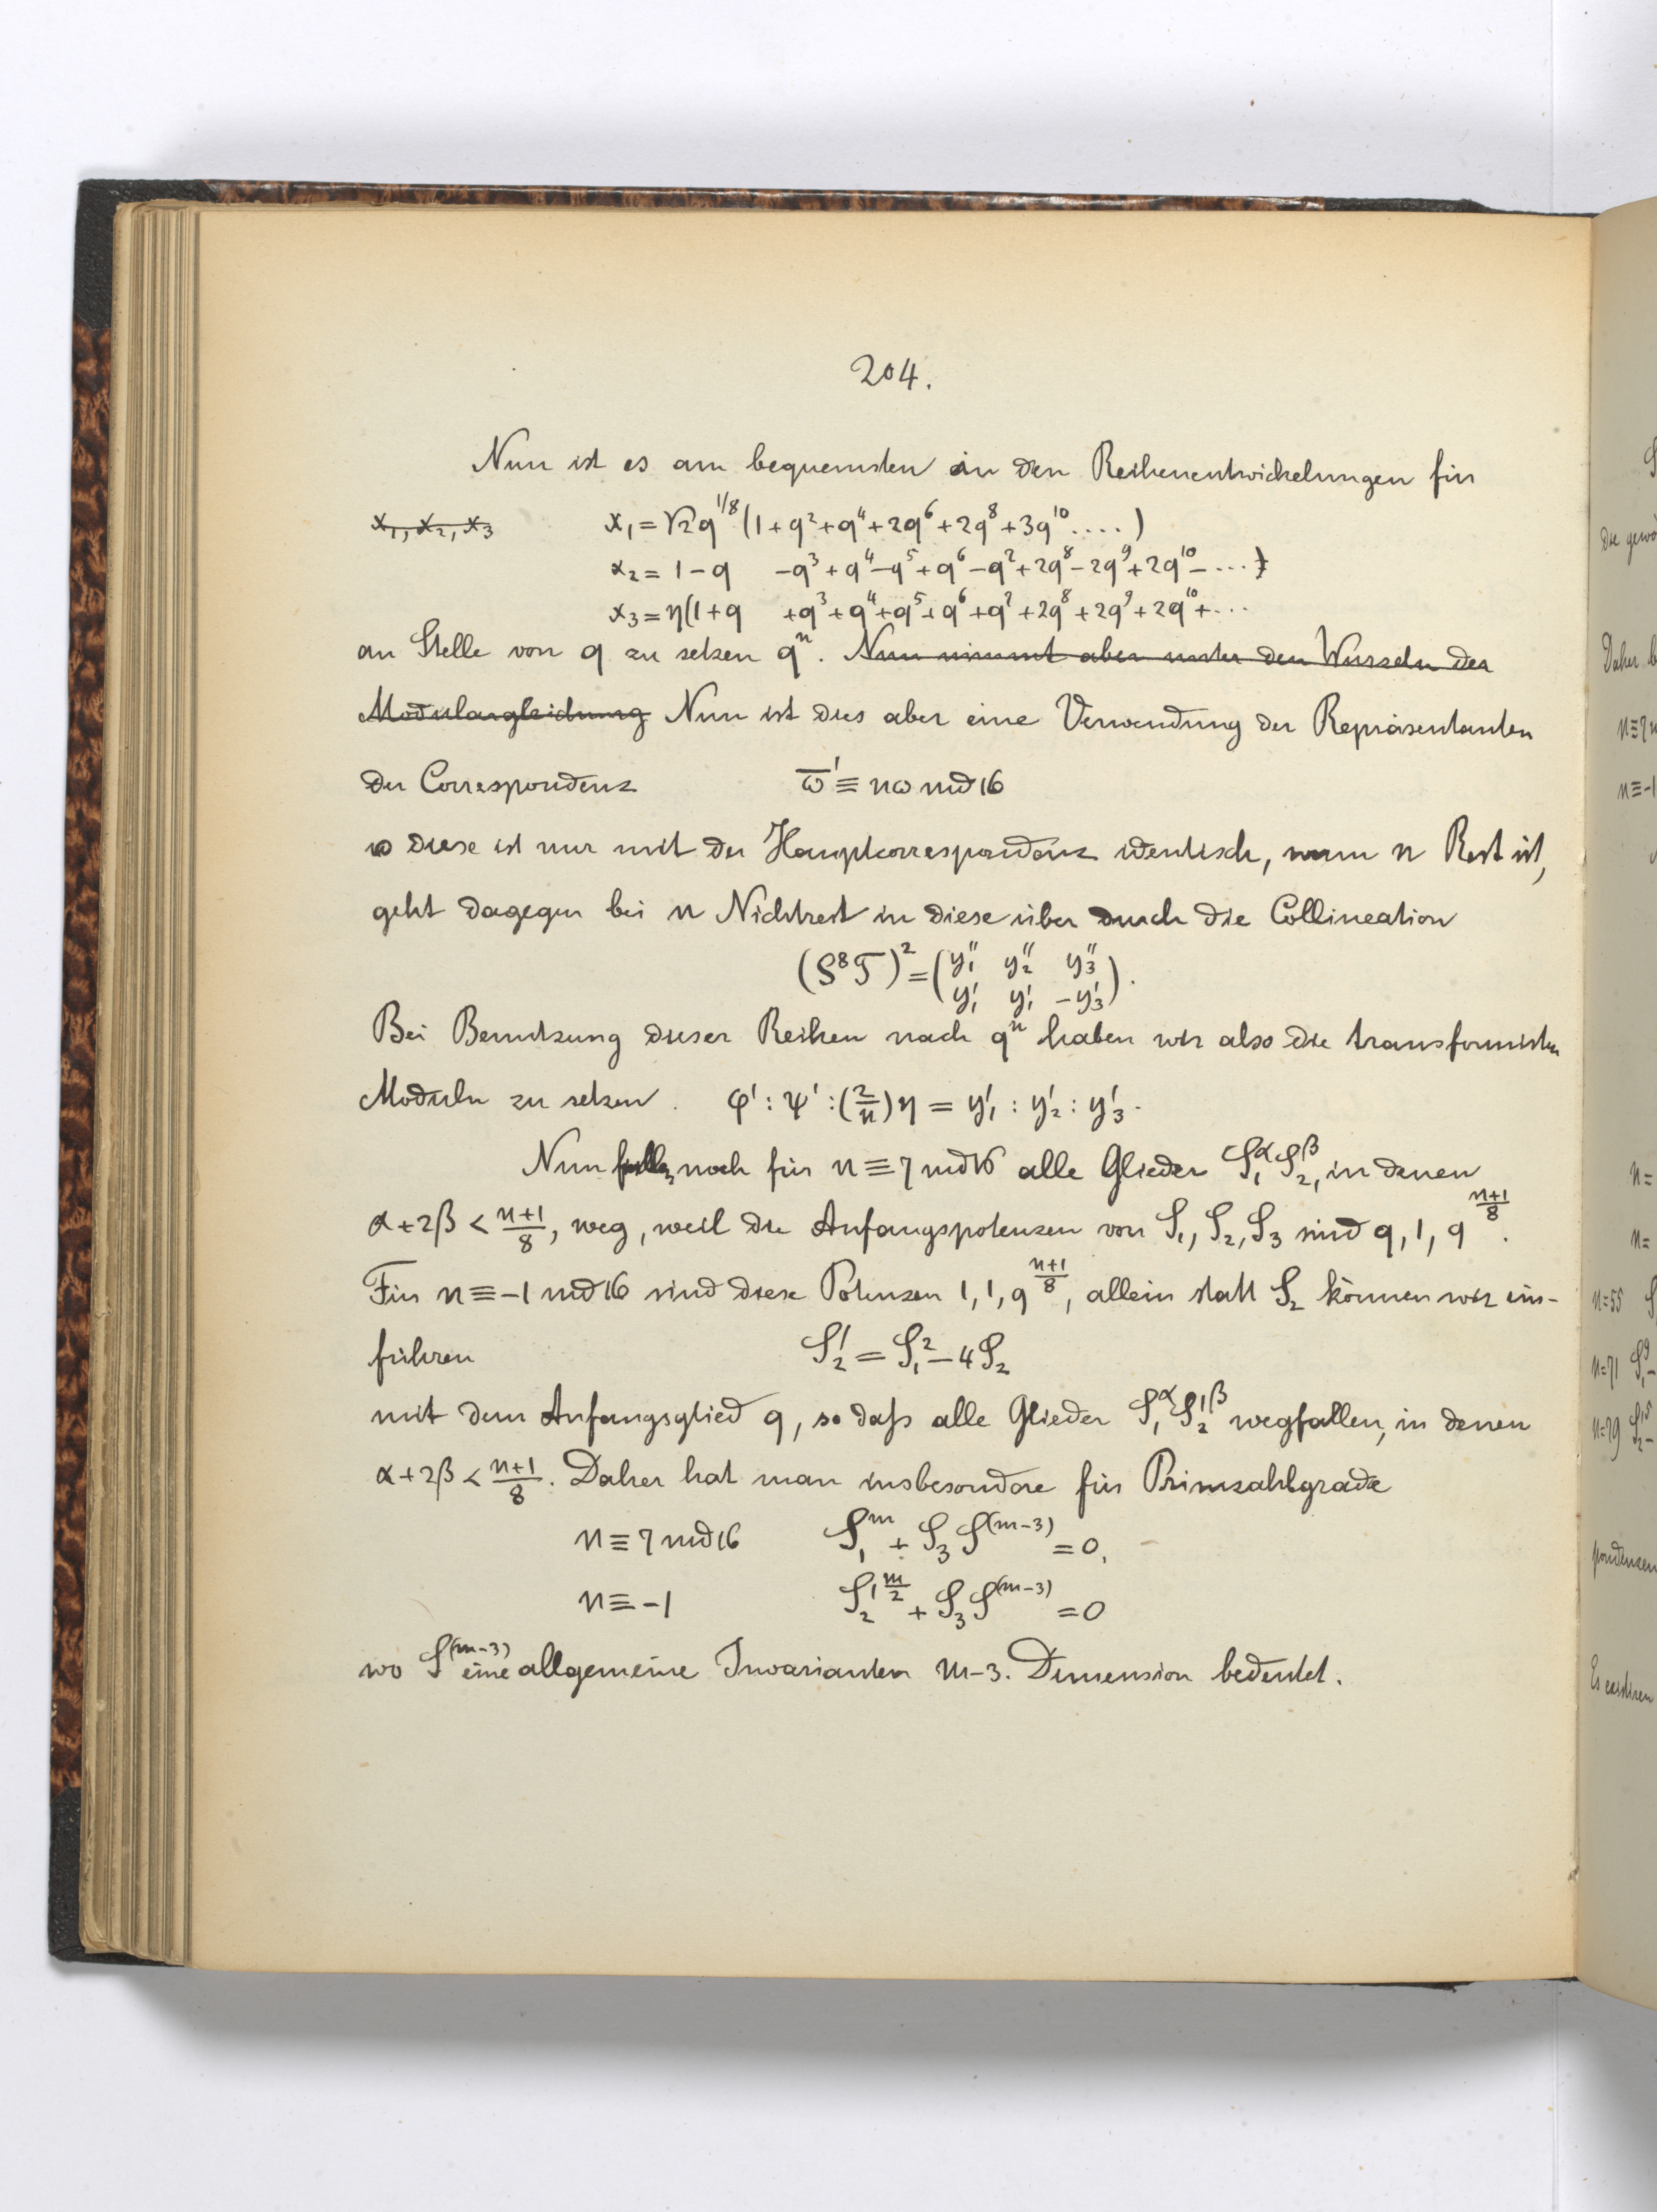 204.
Nun ist es am bequemsten in den Reihenentwickelungen für
x₁, x₂, x₃ x₁ = √2 q^{1/8} (1 + q² + q⁴ + 2q⁶ + 2q⁸ + 3q¹⁰ ....)
x₂ = 1 - q - q³ + q⁴ - q⁵ + q⁶ - q⁷ + 2q⁸ - 2q⁹ + 2q¹⁰ - ...)
x₃ = η(1 + q + q³ + q⁴ + q⁵ + q⁶ + q⁷ + 2q⁸ + 2q⁹ + 2q¹⁰ + ...
an Stelle von q zu setzen qⁿ. Nun nimmt aber unter den Wurzeln der
Modulargleichung Nun ist dies aber eine Verwendung der Repräsentanten
der Correspondenz ω̅' ≡ nω md 16
diese ist nur mit der Hauptcorrespondenz identisch, wenn n Rest ist,
geht dagegen bei n Nichtrest in diese über durch die Collineation
(S⁸T)² = (y₁'' y₂'' y₃''
y₁' y₁' -y₃').
Bei Benutzung dieser Reihen nach qⁿ haben wir also die transformirten
Moduln zu setzen. φ' : ψ' : (2/n)η = y₁' : y₂' : y₃'.
Nun noch für n ≡ 7 md 16 alle Glieder S₁^α S₂^β, in denen
α + 2β < (n+1)/8, weg, weil die Anfangspotenzen von S₁, S₂, S₃ sind q, 1, q^{(n+1)/8}.
Für n ≡ -1 md 16 sind diese Potenzen 1, 1, q^{(n+1)/8}, allein statt S₂ können wir ein-
führen S₂' = S₁² - 4S₂
mit dem Anfangsglied q, so daß alle Glieder S₁^α S₂'^β wegfallen, in denen
α + 2β < (n+1)/8. Daher hat man insbesondere für Primzahlgrade
n ≡ 7 md 16 S₁^m + S₃ S^{(m-3)} = 0,
n ≡ -1 S₂'^{m/2} + S₃ S^{(m-3)} = 0
wo S^{(m-3)} eine allgemeine Invarianten m-3. Dimension bedeutet.
die gewö
Daher b
n ≡ 7 m
n ≡ -1
n =
n =
n = 55
n = 71
n = 79
Es existiren